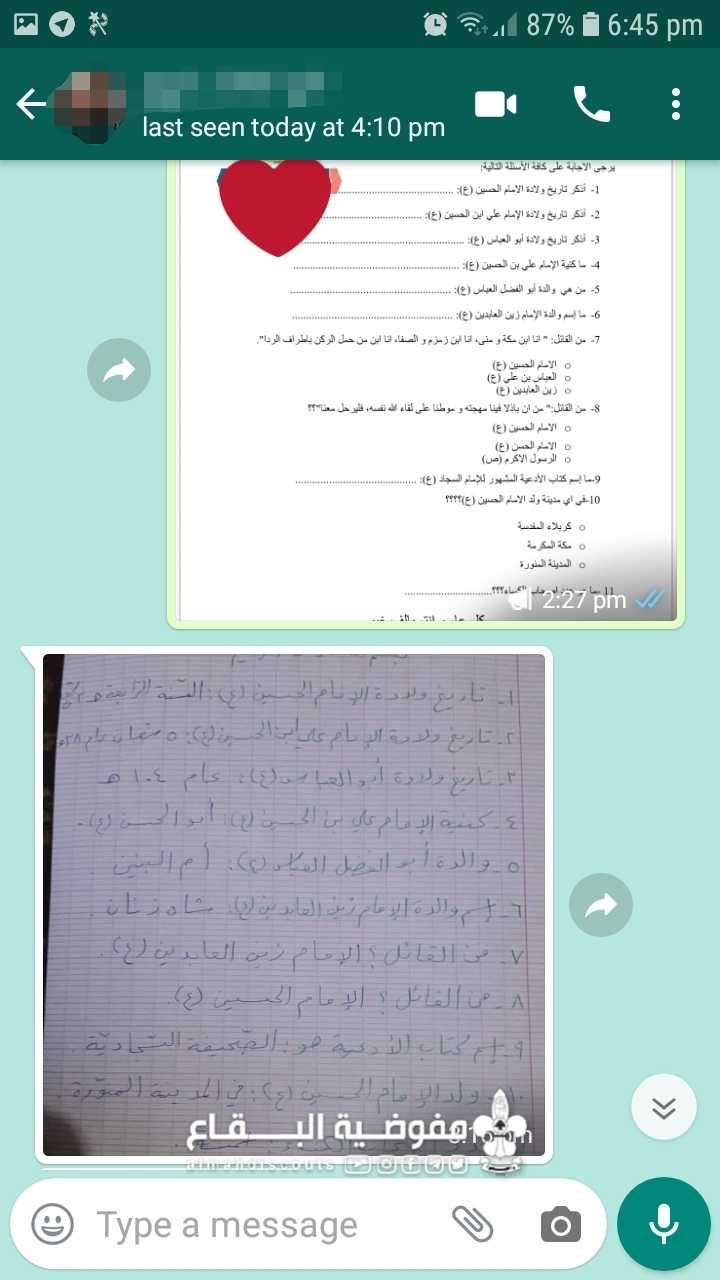 87% 6:45 pm
last seen today at 4:10 pm
يرجى الاجابة على كافة الأسئلة التالية:
1- أذكر تاريخ ولادة الامام الحسين (ع): ........................
2- أذكر تاريخ ولادة الإمام علي ابن الحسين (ع): ........................
3- أذكر تاريخ ولادة أبو العباس (ع): ........................
4- ما كنية الإمام علي بن الحسين (ع): ........................
5- من هي والدة أبو الفضل العباس (ع): ........................
6- ما إسم والدة الإمام زين العابدين (ع): ........................
7- من القائل: " انا ابن مكة و منى، انا ابن زمزم و الصفا، انا ابن من حمل الركن باطراف الردا".
○ الامام الحسين (ع)
○ العباس بن علي (ع)
○ زين العابدين (ع)
8- من القائل:" من ان باذلا فينا مهجته و موطنا على لقاء الله نفسه، فليرحل معنا"؟؟
○ الامام الحسين (ع)
○ الامام الحسن (ع)
○ الرسول الاكرم (ص)
9-ما إسم كتاب الأدعية المشهور للإمام السجاد (ع): ........................
10-في اي مدينة ولد الامام الحسين (ع)؟؟؟؟
○ كربلاء المقدسة
○ مكة المكرمة
○ المدينة المنورة
11
2:27 pm
١- تاريخ ولادة الإمام الحسين (ع): السنة الرابعة
٢- تاريخ ولادة الإمام علي ابن الحسين (ع): ٥ شعبان عام
٣- تاريخ ولادة أبو العباس (ع): عام ١٠٤ هـ
٤- كنية الإمام علي بن الحسين (ع): أبو الحسن (ع).
٥- والدة أبو الفضل العباس (ع): أم البنين.
٦- إسم والدة الإمام زين العابدين (ع): شاه زنان.
٧- من القائل؟ الإمام زين العابدين (ع).
٨- من القائل؟ الإمام الحسين (ع).
٩- إسم كتاب الأدعية هو: الصّحيفة السّجاديّة.
١٠- ولد الإمام الحسين (ع): في المدينة المنوّرة.
مفوضية البـــقاع
almahdiscouts
Type a message